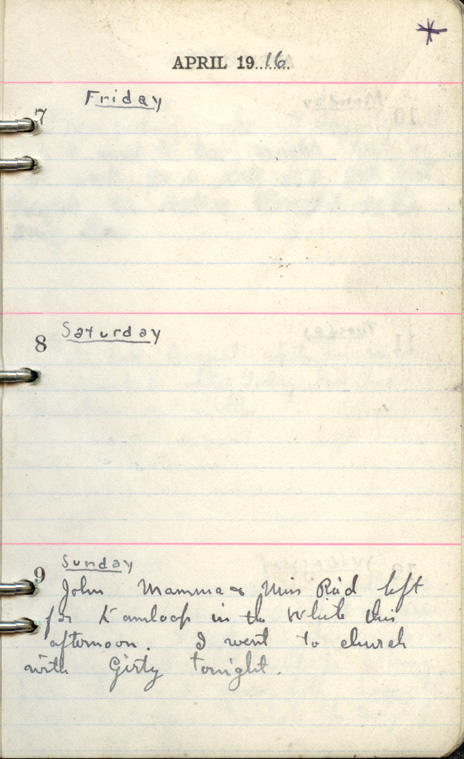 APRIL 1916.
7 Friday
8 Saturday
9 Sunday
John Mamma & Miss Reid left
for Kamloop in the White this
afternoon. I went to church
with Girty tonight.